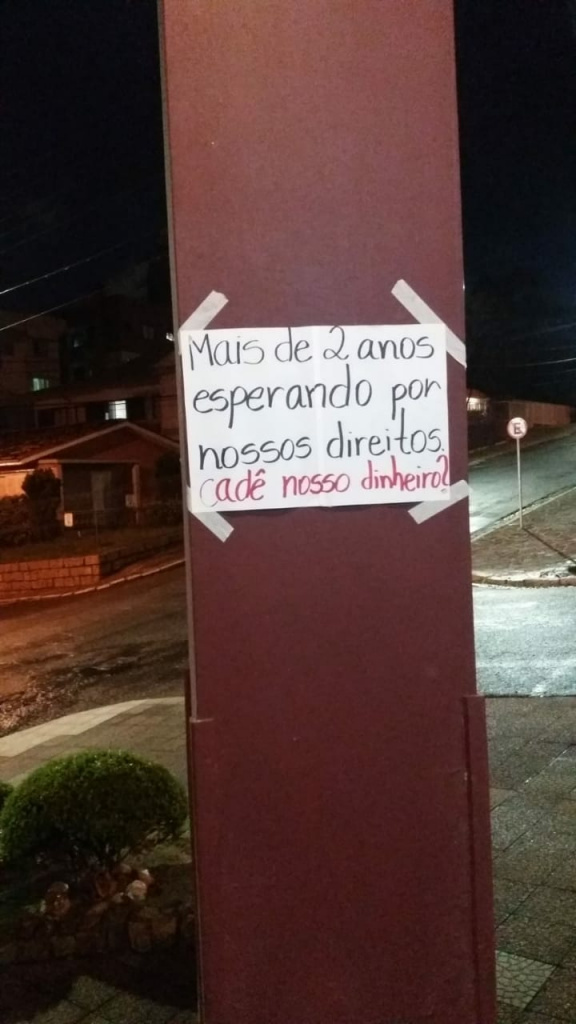 Mais de 2 anos
esperando por
nossos direitos.
Cadê nosso dinheiro?
E